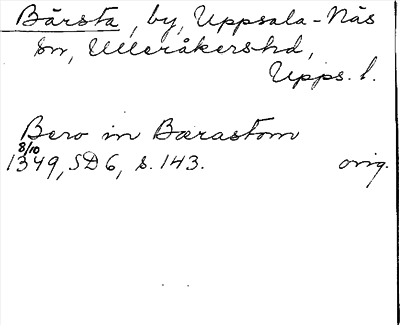 Bärsta, by, Uppsala-Näs
sn, Ulleråkershd,
Upps. l.
Bero in Bærastom
8/10
1349, SD 6, s. 143. orig.